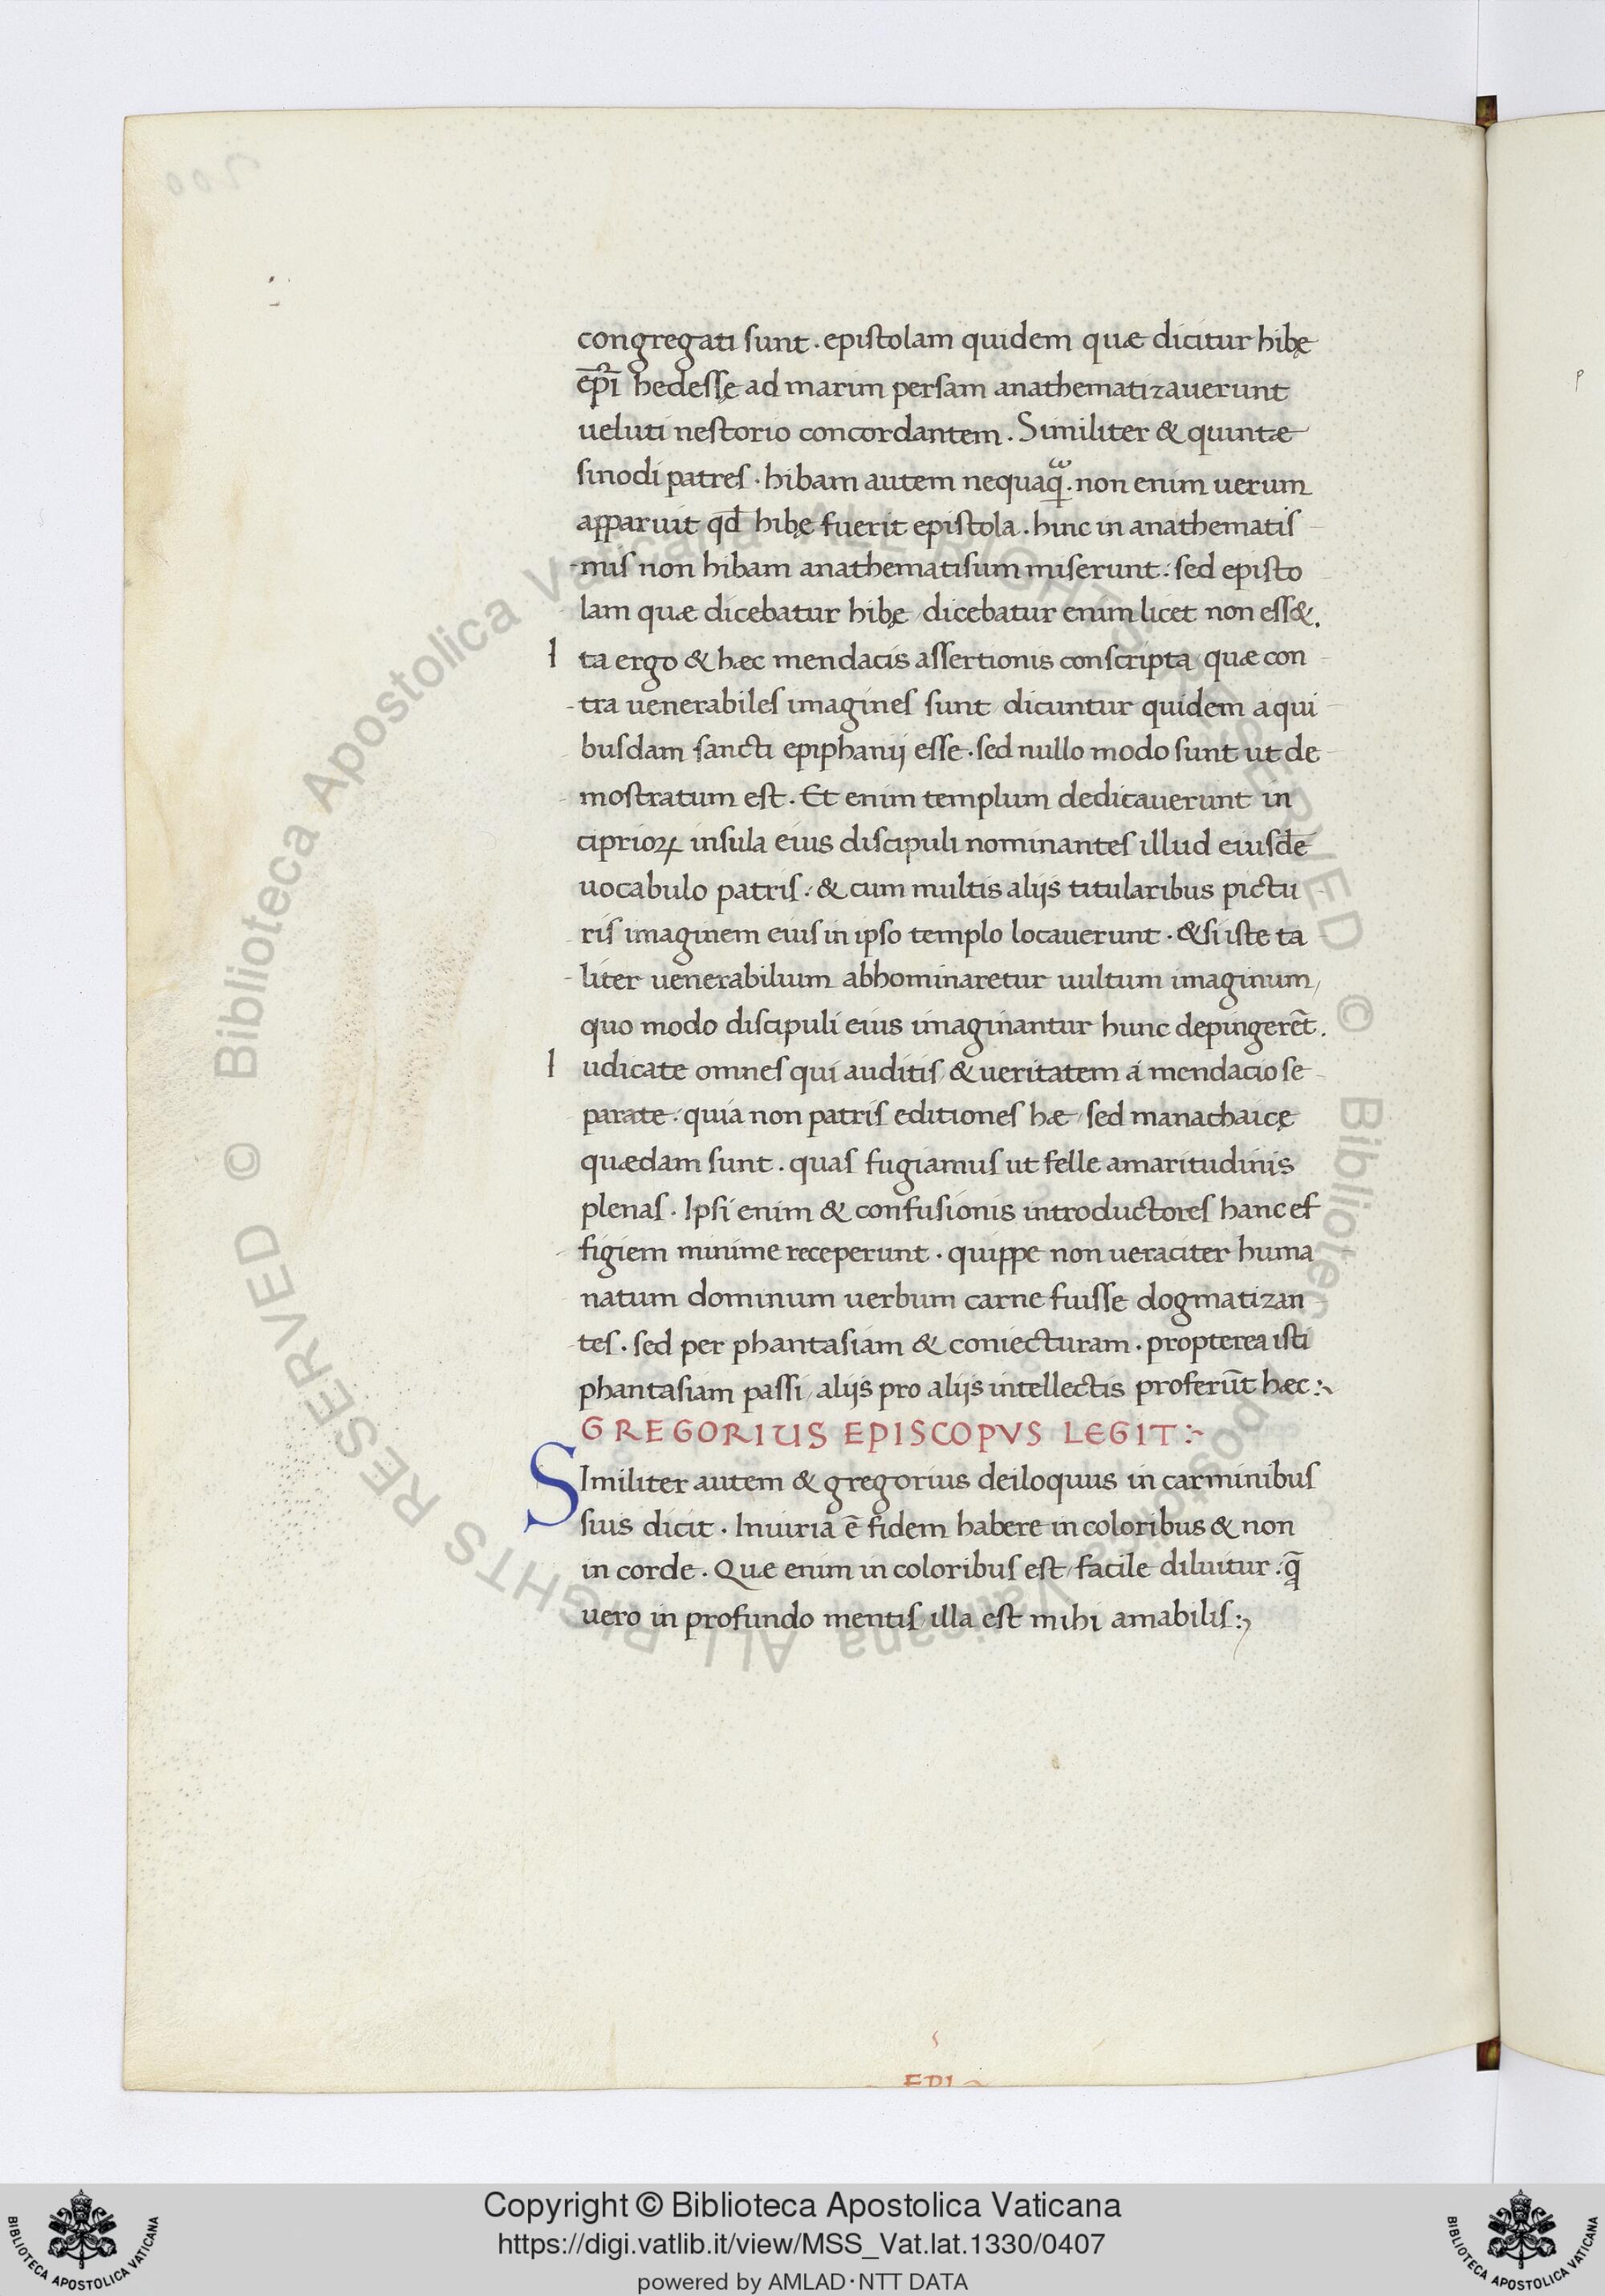 congregati sunt · epistolam quidem quæ dicitur hibę
ep̄i hedessę ad marim persam anathematizauerunt
ueluti nestorio concordantem . Similiter & quintæ
sinodi patres · hibam autem nequaq̄ . non enim uerum
apparuit qd̄ hibę fuerit epistola . hinc in anathematis
mis non hibam anathematisum miserunt : sed episto
lam quæ dicebatur hibę / dicebatur enim licet non ess&.
I ta ergo & hæc mendacis assertionis conscripta / quæ con
tra uenerabiles imagines sunt / dicuntur quidem a qui
busdam sancti epiphanij esse · sed nullo modo sunt ut de
mostratum est . Et enim templum dedicauerunt in
ciprioꝝ insula eius discipuli nominantes illud eiusdē
uocabulo patris : & cum multis alijs titularibus pictu
ris imaginem eius in ipso templo locauerunt · & si iste ta
liter uenerabilium abhominaretur uultum imaginum /
quo modo discipuli eius imaginantur hunc depingerēt .
I udicate omnes qui auditis / & ueritatem á mendacio se
parate : quia non patris editiones hæ / sed manachaicę
quædam sunt . quas fugiamus ut felle amaritudinis
plenas · Ipsi enim & confusionis introductores hanc ef
figiem minime receperunt · quippe non ueraciter huma
natum dominum uerbum carne fuisse dogmatizan
tes . sed per phantasiam & coniecturam . propterea isti
phantasiam passi / alijs pro alijs intellectis proferūt hæc :~
GREGORIUS EPISCOPVS LEGIT :~
SImiliter autem & gregorius deiloquus in carminibus
suis dicit · Iniuria ē fidem habere in coloribus & non
in corde . Quæ enim in coloribus est / facile diluitur : q̄
uero in profundo mentis / illa est mihi amabilis :,
© Biblioteca Apostolica Vaticana ALL RIGHTS RESERVED © Biblioteca Apostolica Vaticana ALL RIGHTS RESERVED
Copyright © Biblioteca Apostolica Vaticana
https://digi.vatlib.it/view/MSS_Vat.lat.1330/0407
powered by AMLAD·NTT DATA
BIBLIOTECA APOSTOLICA VATICANA
BIBLIOTECA APOSTOLICA VATICANA